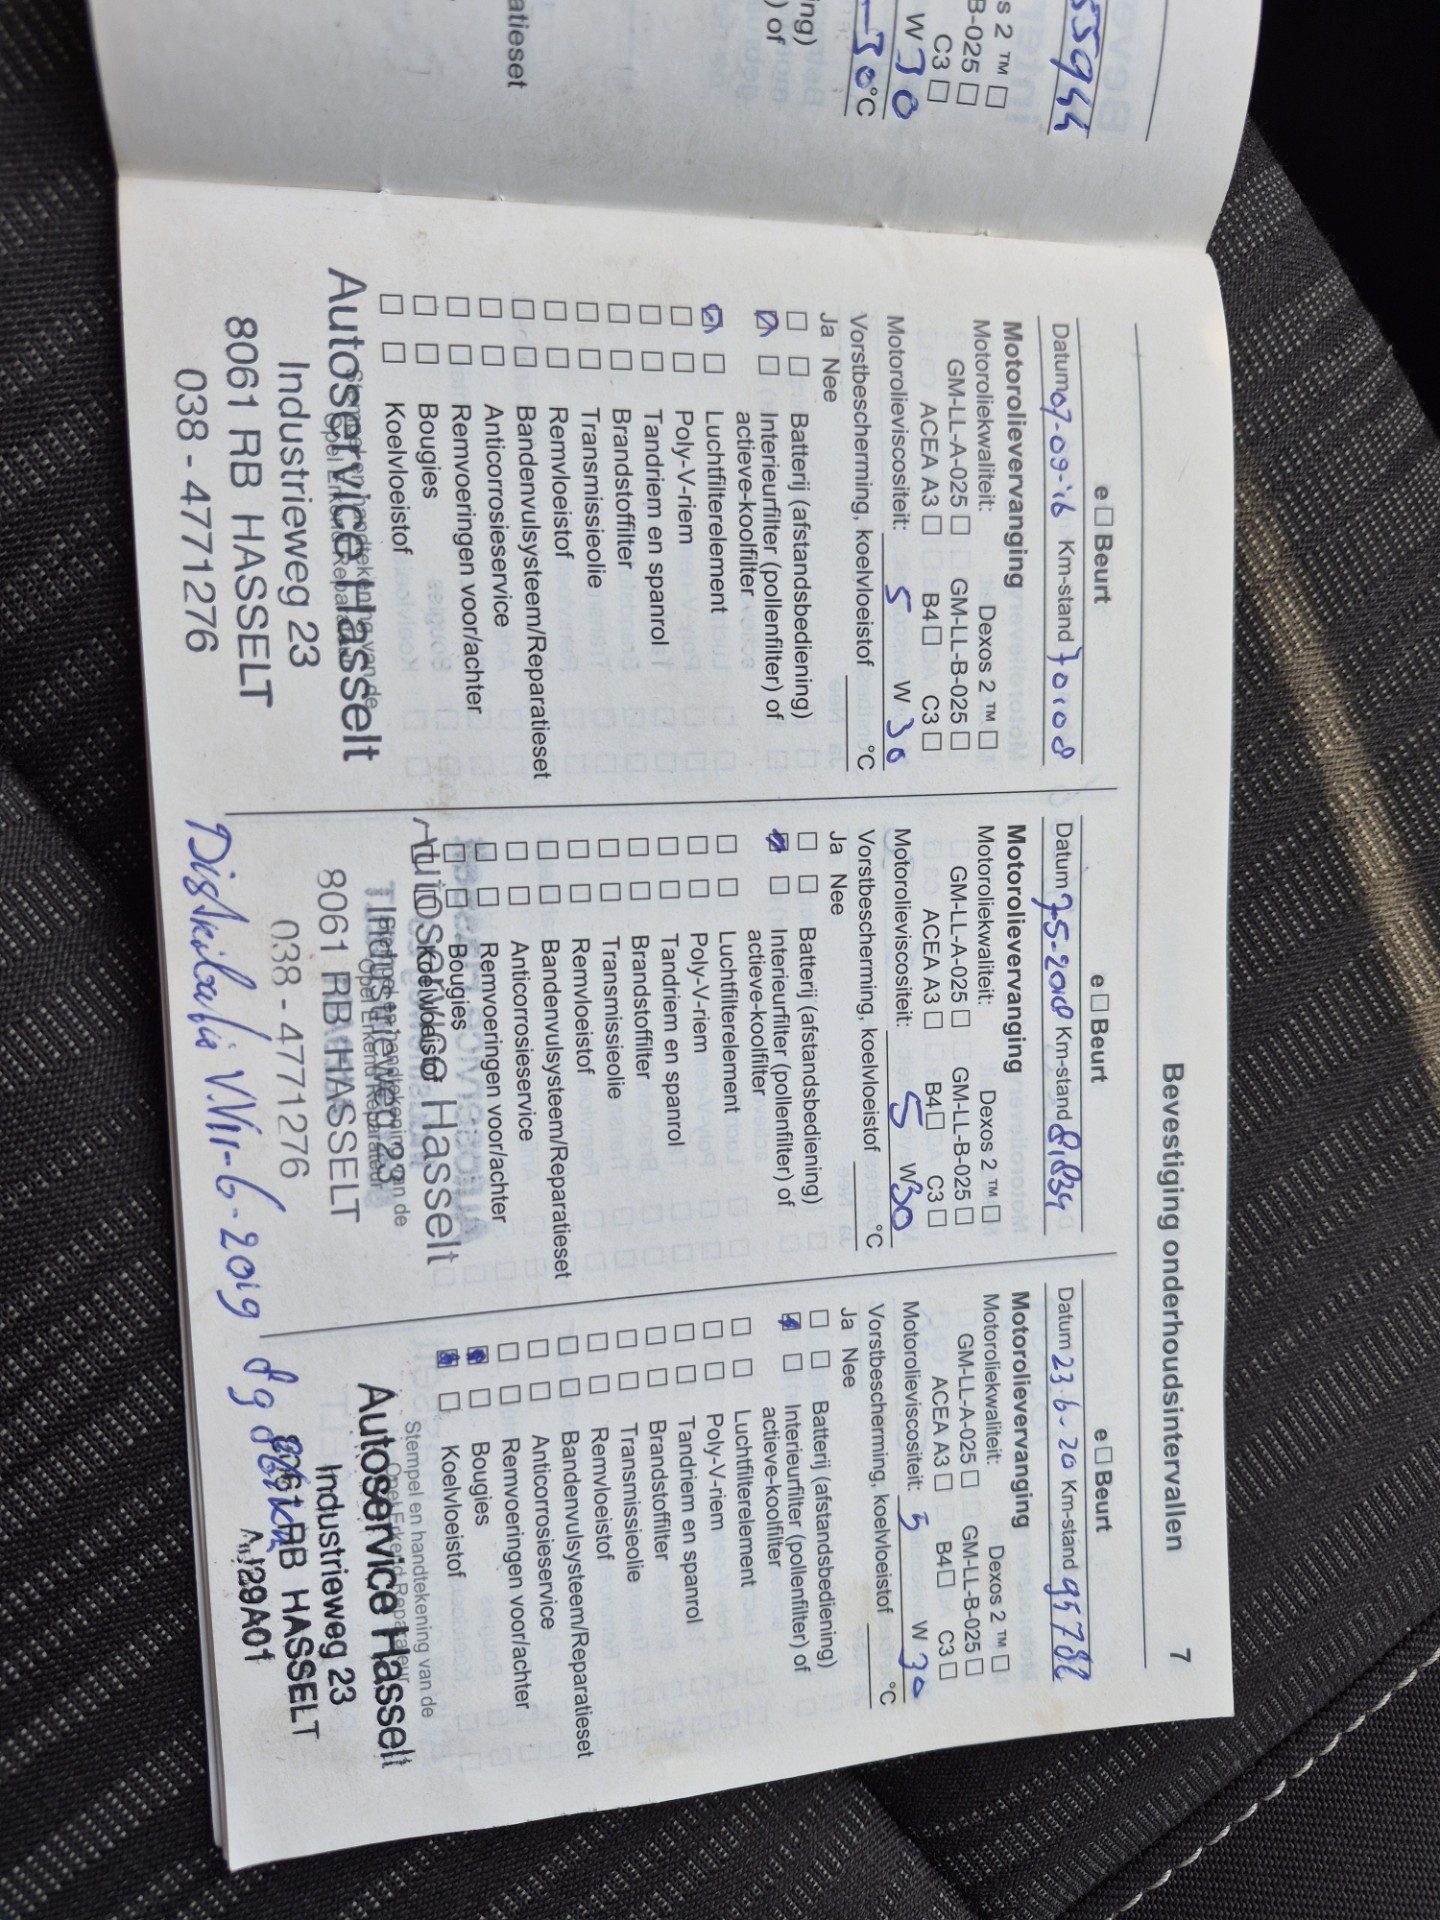 55944
s 2 ™ ☐
B-025 ☐
C3 ☐
W 30
-30 °C
ing)
) of
atieset
Bevestiging onderhoudsintervallen 7
e ☐ Beurt
Datum 07-09-'16 Km-stand 70108
Motorolievervanging
Motoroliekwaliteit: Dexos 2 ™ ☐
GM-LL-A-025 ☐ GM-LL-B-025 ☐
ACEA A3 ☐ B4 ☐ C3 ☐
Motorolieviscositeit: 5 W 30
Vorstbescherming, koelvloeistof °C
Ja Nee
☐ ☐ Batterij (afstandsbediening)
☑ ☐ Interieurfilter (pollenfilter) of
actieve-koolfilter
☑ ☐ Luchtfilterelement
☐ ☐ Poly-V-riem
☐ ☐ Tandriem en spanrol
☐ ☐ Brandstoffilter
☐ ☐ Transmissieolie
☐ ☐ Remvloeistof
☐ ☐ Bandenvulsysteem/Reparatieset
☐ ☐ Anticorrosieservice
☐ ☐ Remvoeringen voor/achter
☐ ☐ Bougies
☐ ☐ Koelvloeistof
Autoservice Hasselt
Industrieweg 23
8061 RB HASSELT
038 - 4771276
e ☐ Beurt
Datum 75-2018 Km-stand 81834
Motorolievervanging
Motoroliekwaliteit: Dexos 2 ™ ☐
GM-LL-A-025 ☐ GM-LL-B-025 ☐
ACEA A3 ☐ B4 ☐ C3 ☐
Motorolieviscositeit: 5 W 30
Vorstbescherming, koelvloeistof °C
Ja Nee
☐ ☐ Batterij (afstandsbediening)
☑ ☐ Interieurfilter (pollenfilter) of
actieve-koolfilter
☐ ☐ Luchtfilterelement
☐ ☐ Poly-V-riem
☐ ☐ Tandriem en spanrol
☐ ☐ Brandstoffilter
☐ ☐ Transmissieolie
☐ ☐ Remvloeistof
☐ ☐ Bandenvulsysteem/Reparatieset
☐ ☐ Anticorrosieservice
☐ ☐ Remvoeringen voor/achter
☐ ☐ Bougies
☐ ☐ Koelvloeistof
Autoservice Hasselt
Industrieweg 23
8061 RB HASSELT
038 - 4771276
6-2019
e ☐ Beurt
Datum 23-6-20 Km-stand 95782
Motorolievervanging
Motoroliekwaliteit: Dexos 2 ™ ☐
GM-LL-A-025 ☐ GM-LL-B-025 ☐
ACEA A3 ☐ B4 ☐ C3 ☐
Motorolieviscositeit: 5 W 30
Vorstbescherming, koelvloeistof °C
Ja Nee
☐ ☐ Batterij (afstandsbediening)
☑ ☐ Interieurfilter (pollenfilter) of
actieve-koolfilter
☐ ☐ Luchtfilterelement
☐ ☐ Poly-V-riem
☐ ☐ Tandriem en spanrol
☐ ☐ Brandstoffilter
☐ ☐ Transmissieolie
☐ ☐ Remvloeistof
☐ ☐ Bandenvulsysteem/Reparatieset
☐ ☐ Anticorrosieservice
☐ ☐ Remvoeringen voor/achter
☑ ☐ Bougies
☑ ☐ Koelvloeistof
Stempel en handtekening van de
Opel Erkend Reparateur
Autoservice Hasselt
Industrieweg 23
8061 RB HASSELT